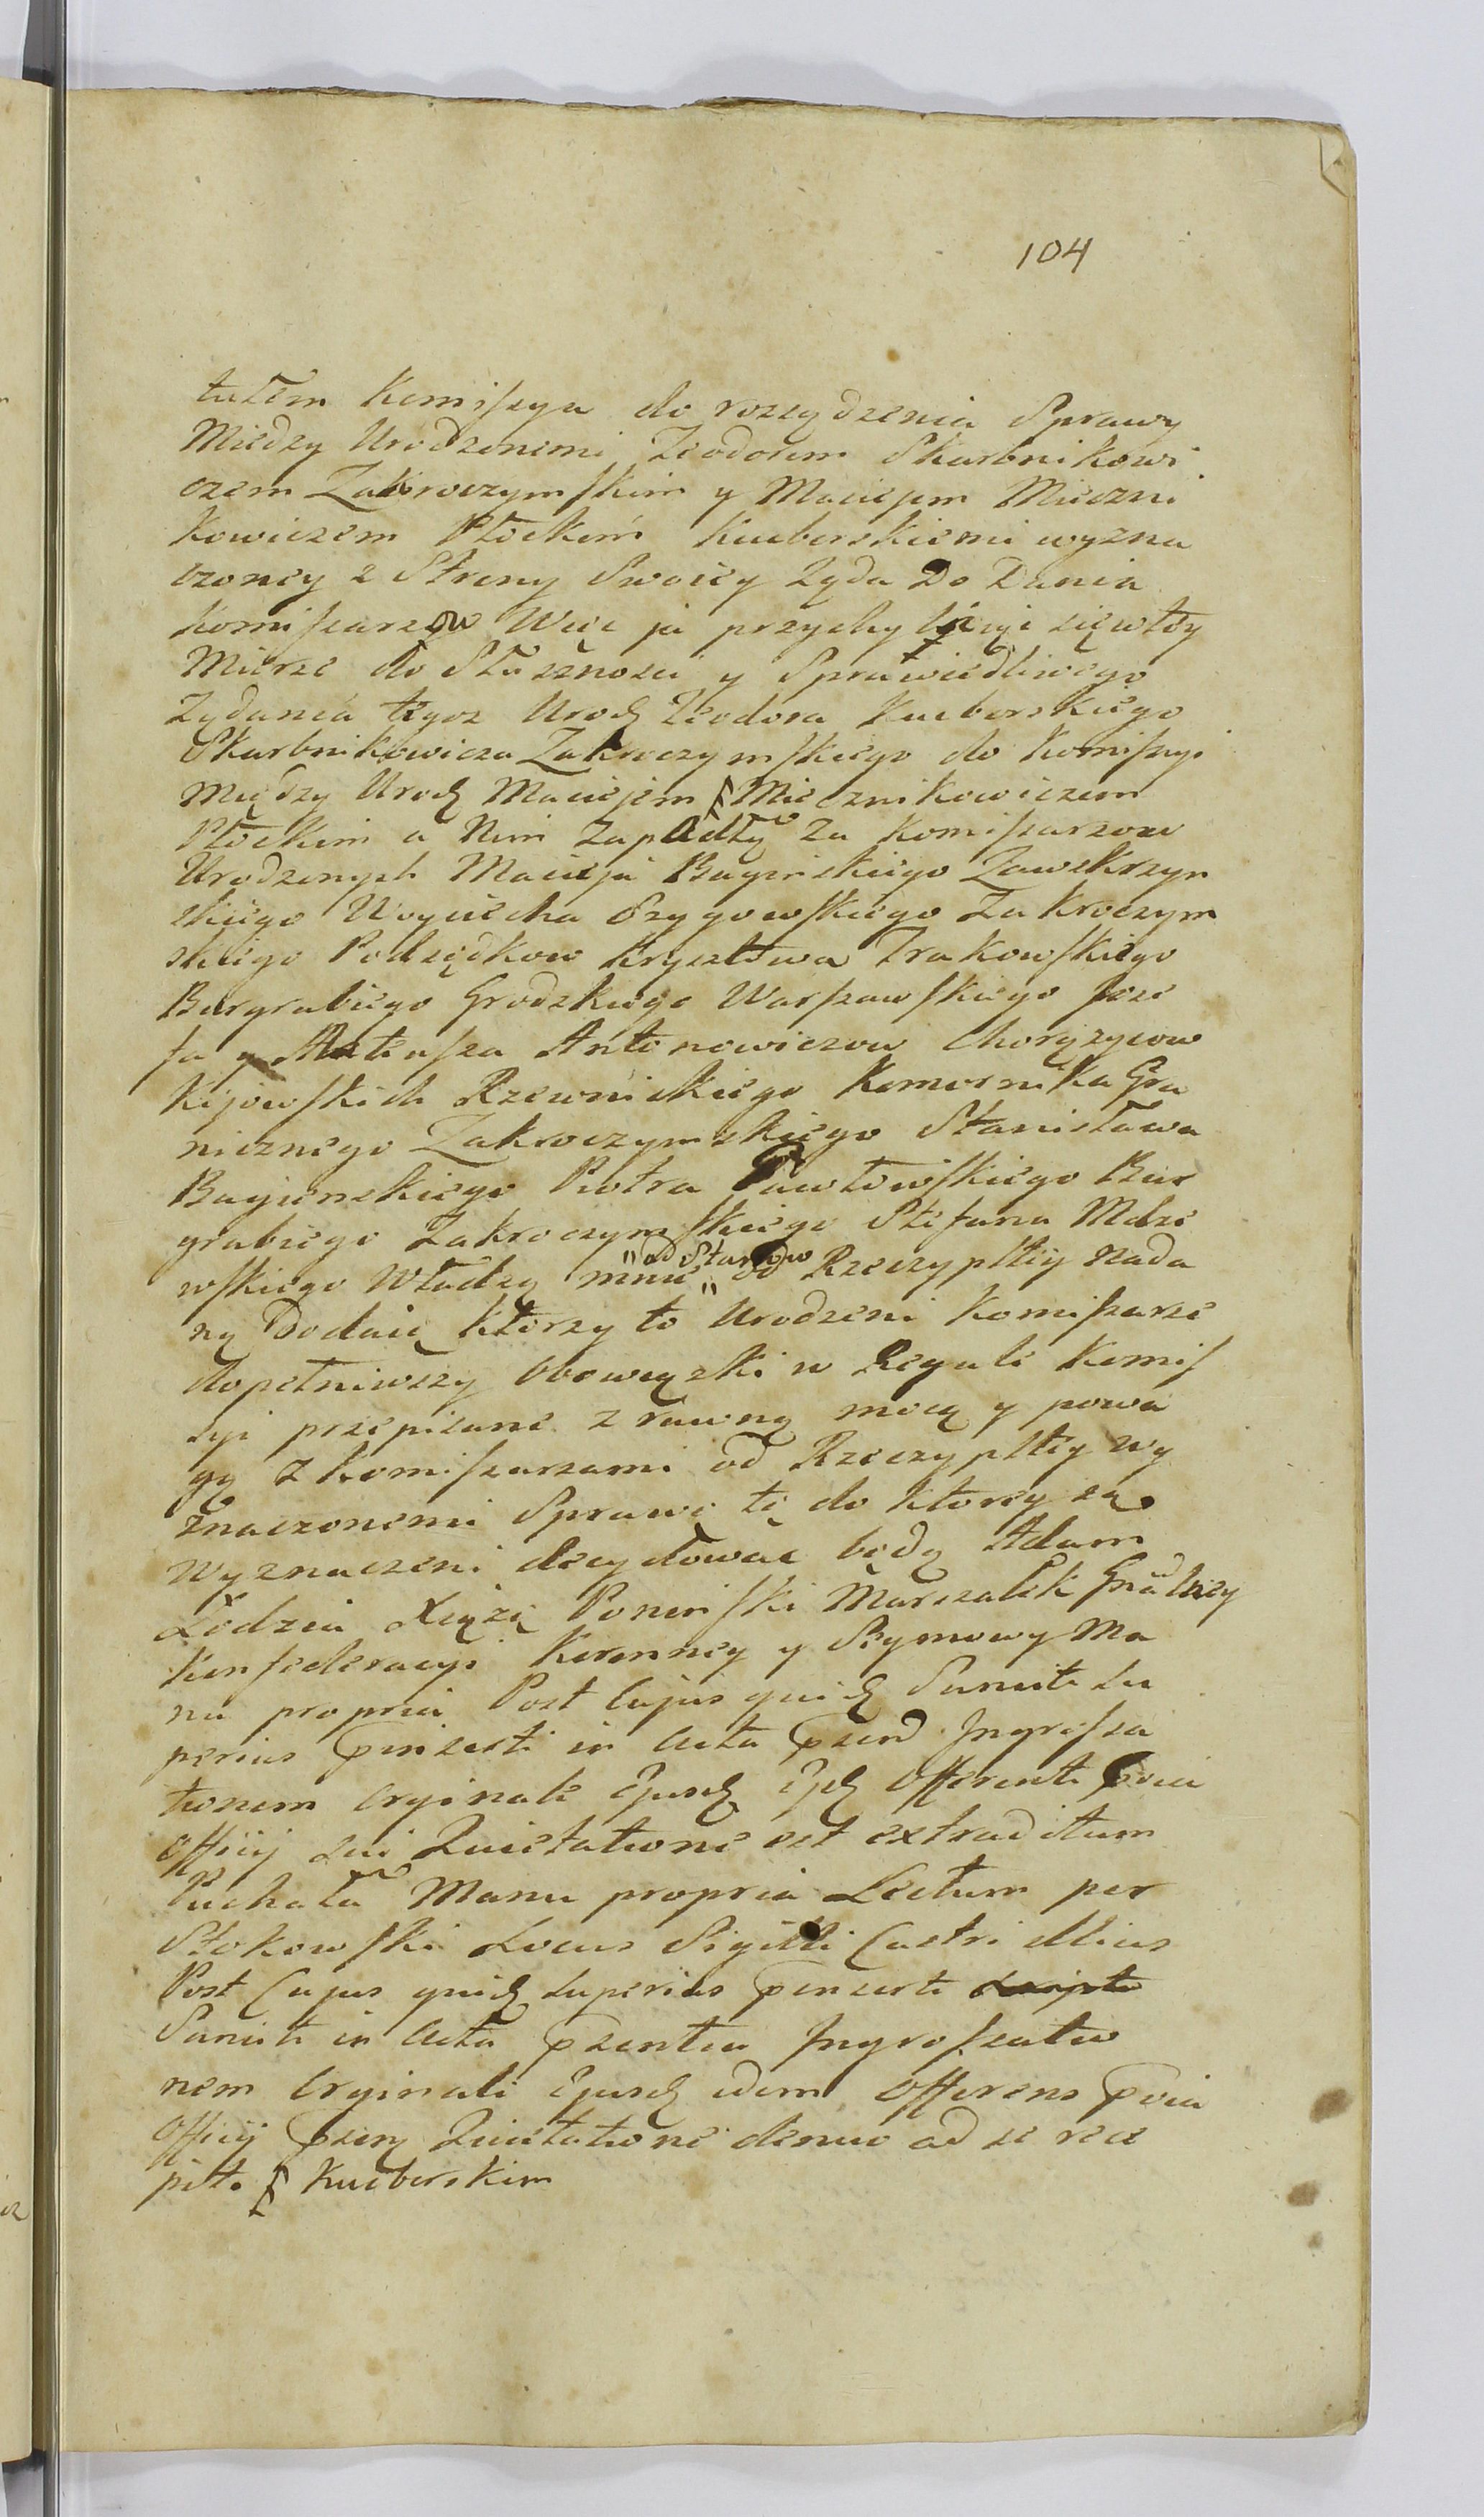 104
tułem Komiſsya do rozsądzenia Sprawy
Między Urodzonemi Teodorem Skarbnikowi
czem Zakroczymſkim y Maciejem Mieczni
kowiczem Płockim Kucborskiemi wyzna
czoney z Strony Swoiey Ząda Do Dania
Komiſsarzow Więc ja przychylaiąc się w tey
Mierze do Słuszności y Sprawiedliwego
Ządania tegoz Urodz Teodora Kucborskiego
Skarbnikowicza Zakroczymſkiego do Komiſsyi
Między Urodz Maciejem Miecznikowiczem
Płockim a Nim Zapadły Za Komiſsarzow
Urodzonych Macieja Baginskiego Zawskrzyn
skiego Woyciecha Szygowſkiego Zakroczym
skiego Podsędkow Krysztowa Trakowſkiego
Burgrabiego Grodzkiego Warſzawſkiego Joze
fa y Mateuſza Antonowiczow Chorązycow
Kijowſkich Rzewnickiego Komornika Gra
nicznego Zakroczymskiego Stanisława
Bagienskiego Piotra Pawłowſkiego Bur
grabiego Zakroczymſkiego Stefana Mdze
wſkiego Władzą mnie „od Stanow„ od Rzeczypltey nada
ną Dodaię ktorzy to Urodzeni Komiſsarze
dopełniwszy Obowiązki w Regule Komiſ
syi przepisane z rawną mocą y powa
gą z Komiſsarzami od Rzeczypltey wy
znaczonemi Sprawę tę do ktorey są
wyznaczeni decydować będą Adam
Łodzia Xiąże Poninſki Marszałek Gnralney
Konfederacyi Koronney y Seymowy Ma
nu propria Post Cujus quidz Sancite Su
perius pinserti in Acta pszend Ingroſsa
tionem Orginale Ejusdz Ipdz Offerenti pvia
Officij Sui Quietatione est extraditum
Puchała Manu propria Lectum per
Stokowſki Locus Sigilli Castri illius
Post Cujus quidz Superius pinserti
Sanciti in Acta pszentia Ingroſsatio
nem Orginali Ejusdz idem Offerens pvia
Officij pszens Quietatione denuo ad se rece
pit. Kucborskim